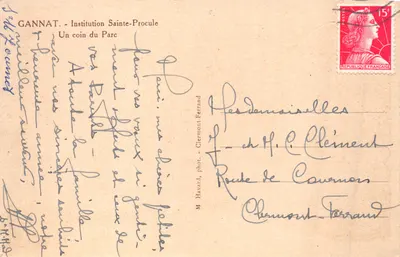 GANNAT. - Institution Sainte-Procule
Un coin du Parc
15F
REPUBLIQUE FRANÇAISE
Merci, mes chères petites,
pour vos vœux si genti-
ment
et ceux de
vos
A toute la famille,
va nos sincères souhaits
d'heureuse année, notre
meilleur souvenir,
M Hazard, phot. - Clermont-Ferrand
Mesdemoiselles
J- et M. C. Clément
Route de Cournon
Clermont-Ferrand